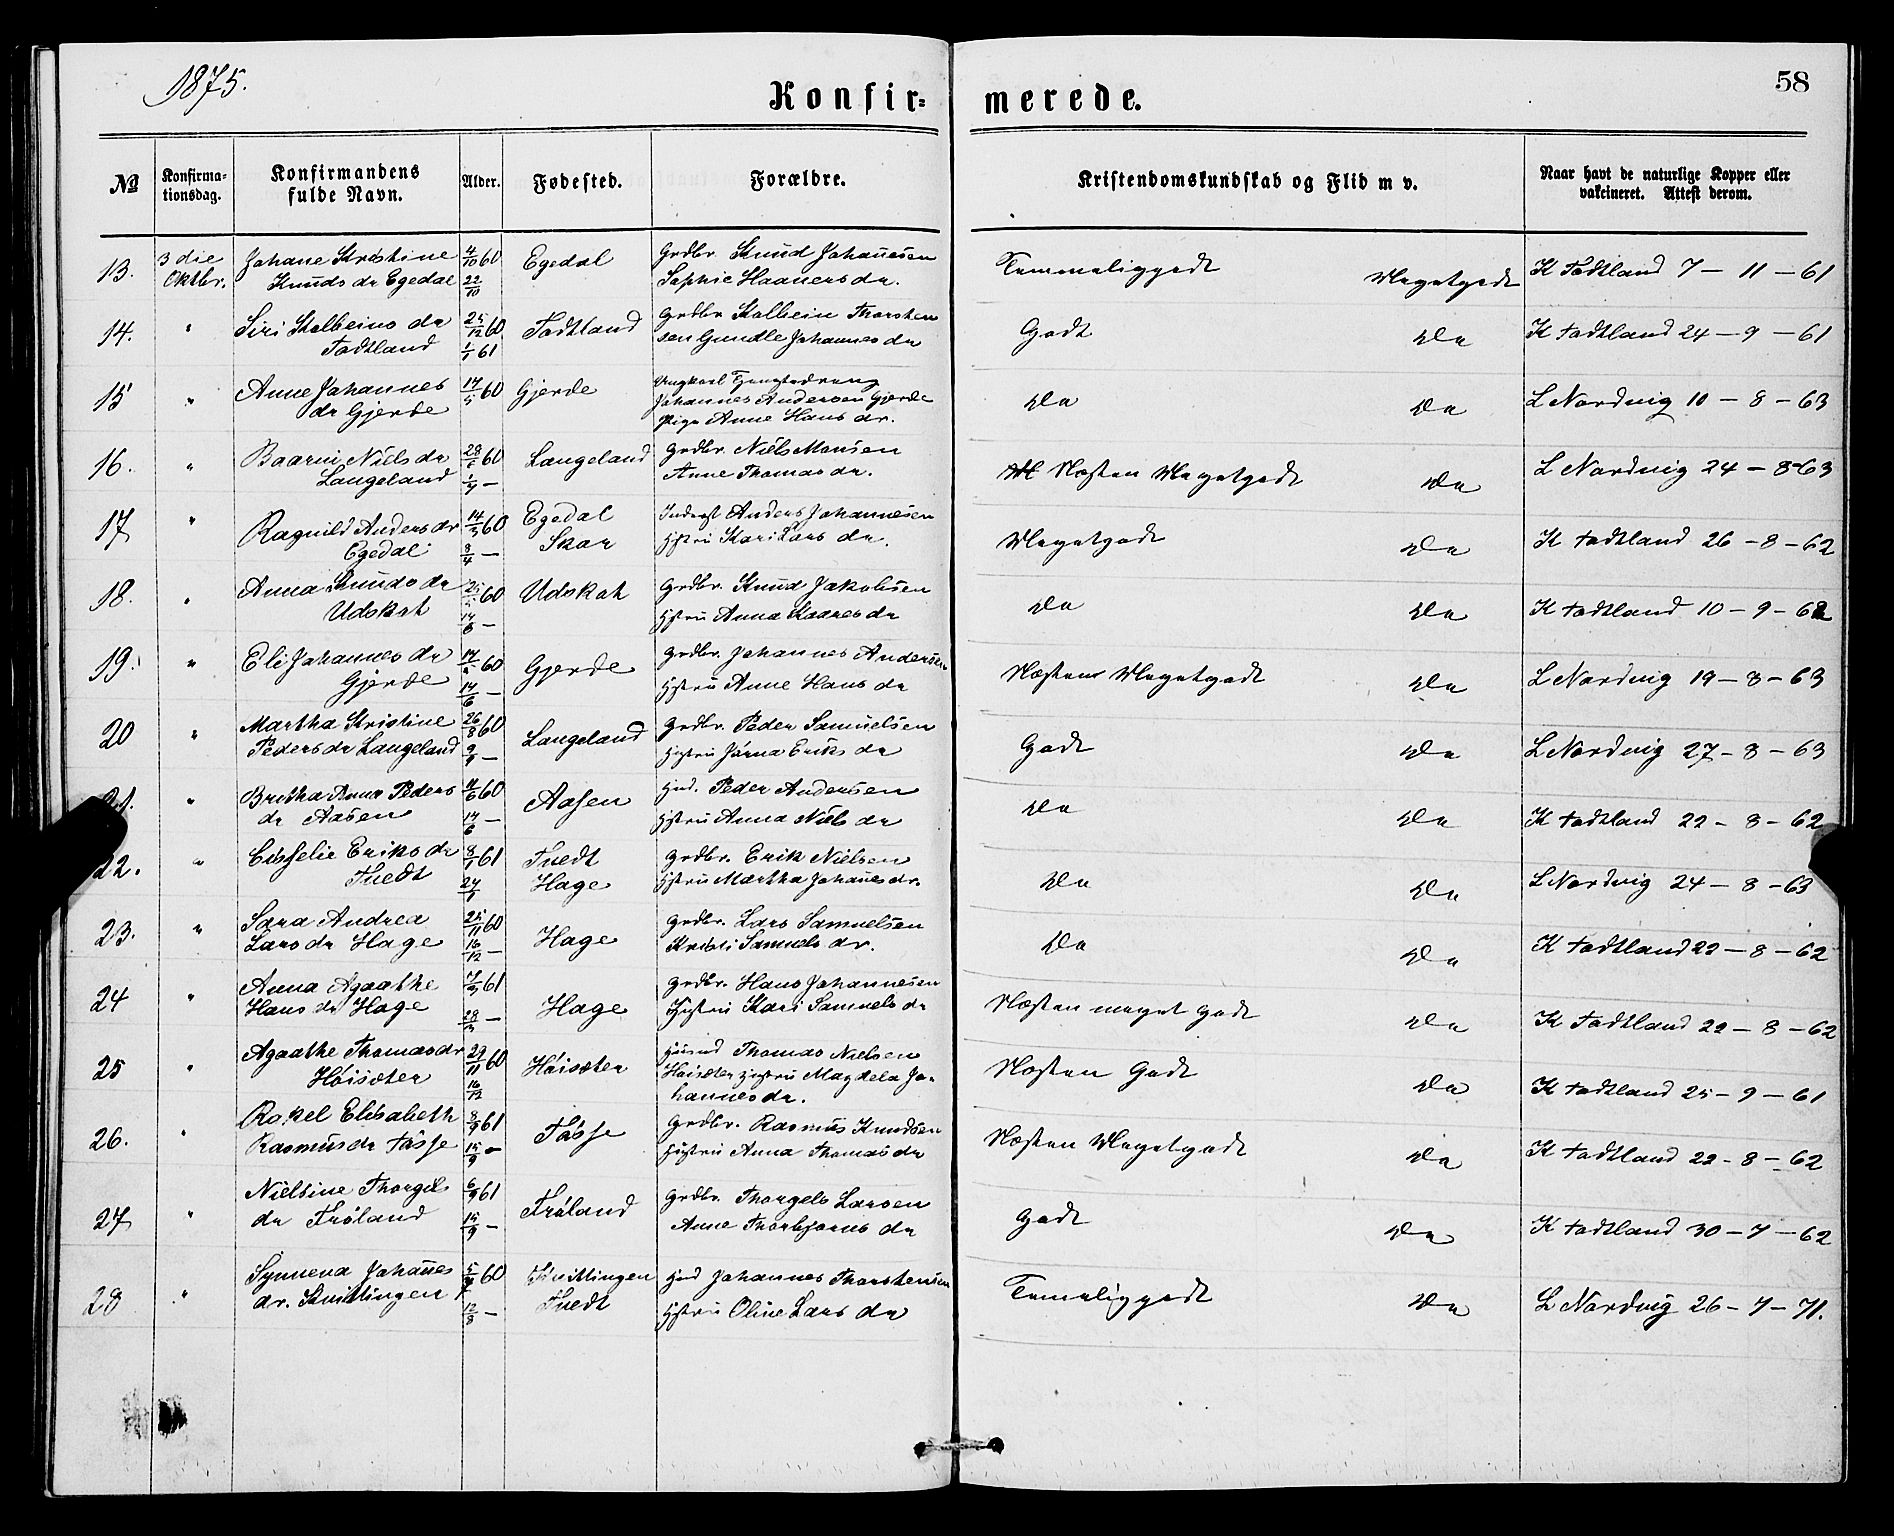 1875.
58
Konfir=
merede.
№ Konfirma-tionsdag. Konfirmandens fulde Navn. Alder. Fødested. Forældre. Kristendomskundskab og Flid m v. Naar havt de naturlige Kopper eller vakcineret. Attest derom.
13. 3 die Johane Kristine 4/10 60 Egedal Grdbr. Knud Johanesen Temmeliggodt Megetgodt K Tadtland 7 - 11 - 61
Oktbr. Knuds dr Egedal 22/10 Sophie Haavers dr.
14. " Siri Kolbeins dr 25/12 60 Tadtland Grdbr Kolbein Thorsten Godt Do K Tadtland 24 - 9 - 61
Tadtland 1/1 61 sen Gundle Johannes dr
15 " Anne Johannes 17/5 60 Gjerde Ungkarl Do Do L Nordvig 10 - 8 - 63
dr Gjerde Johannes Andersen Gjerde
Pige Anne Hans dr.
16. " Baarni Niels dr 28/6 60 Langeland Grdbr. Niels Monsen Næsten Megetgodt Do L Nordvig 24 - 8-63
Langeland 1/7 - Anne Thomas dr.
17 " Ragnild Anders dr 14/3 60 Egedal Inderst Anders Johannesen Megetgodt Do K Tadtland 26 - 8 - 62
Egedal 8/4 - Skar Hstru Kari Lars dr.
18. " Anna Knuds dr 25/5 60 Udskot Grdbr. Knud Jakobsen Do Do K Tadtland 10 - 9 - 62
Udskot 14/6 - Hstru Anna Kaares dr
19. " Eli Johannes dr 17/5 60 Gjerde Grdbr. Johannes Andersen Næsten Megetgodt Do L Nordvig 19 - 8 - 63
Gjerde 14/6 - Hstru Anne Hans dr
20 " Martha Kristine 26/8 60 Langeland Grdbr. Peder Samuelsen Godt Do L Nordvig 27 - 8 - 63
Peders dr Langeland 9/9 - Hstru Jorna Eriks dr
21. " Britha Anna Peders 11/6 60 Aasen Hmd. Peder Andersen Do Do K Tadtland 22 - 8 - 62
dr Aasen 14/6 - Hstru Anna Niels dr
22. " Eriks dr 8/1 61 Tuedt Grdbr. Erik Nielsen Do Do L Nordvig 24 - 8 - 63
Tuedt 27/1 Hage Hstru Martha Johanes dr.
23. " Sara Andrea 25/11 60 Hage Grdbr. Lars Samuelsen Do Do K Tadtland 22 - 8 - 62
Lars dr Hage 16/12 - Kristi Samuels dr.
24 " Anna Agaathe 7/3 61 Hage Grdbr. Hans Johannesen Næsten meget godt Do K Tadtland 22 - 8 - 62
Hans dr Hage 28/3 - Hustru Kari Samuels dr
25 " Agaathe Thomas dr 29/11 60 Høisæter Husmd Thomas Nielsen Næsten Godt Do K Tadtland 25 - 9 - 61
Høisæter 16/12 Høisæter Hustru Magdela Jo-
hannes dr.
26. " Rakel Elisabeth 8/9 61 Tøsse Grdbr. Rasmus Knudsen Næsten Megetgodt Do K Tadtland 22 - 8 - 62
Rasmus dr Tøsse 15/9 - Hustru Anna Thomas dr
27 " Nielsine Thorgils 6/9 61 Frøland Grdbr. Thorgils Larsen Godt Do K Tadtland 30 - 7 - 62
dr Frøland 15/9 - Anne Thorbjørns dr
28 " Synneva Johanes 5/7 60 Kvittingen Hmd Johannes Thorstensen Temeliggodt Do L Nordvig 26 - 7 - 71.
dr. Kvittingen 12/8 - Tuedt Hstru Oline Lars dr